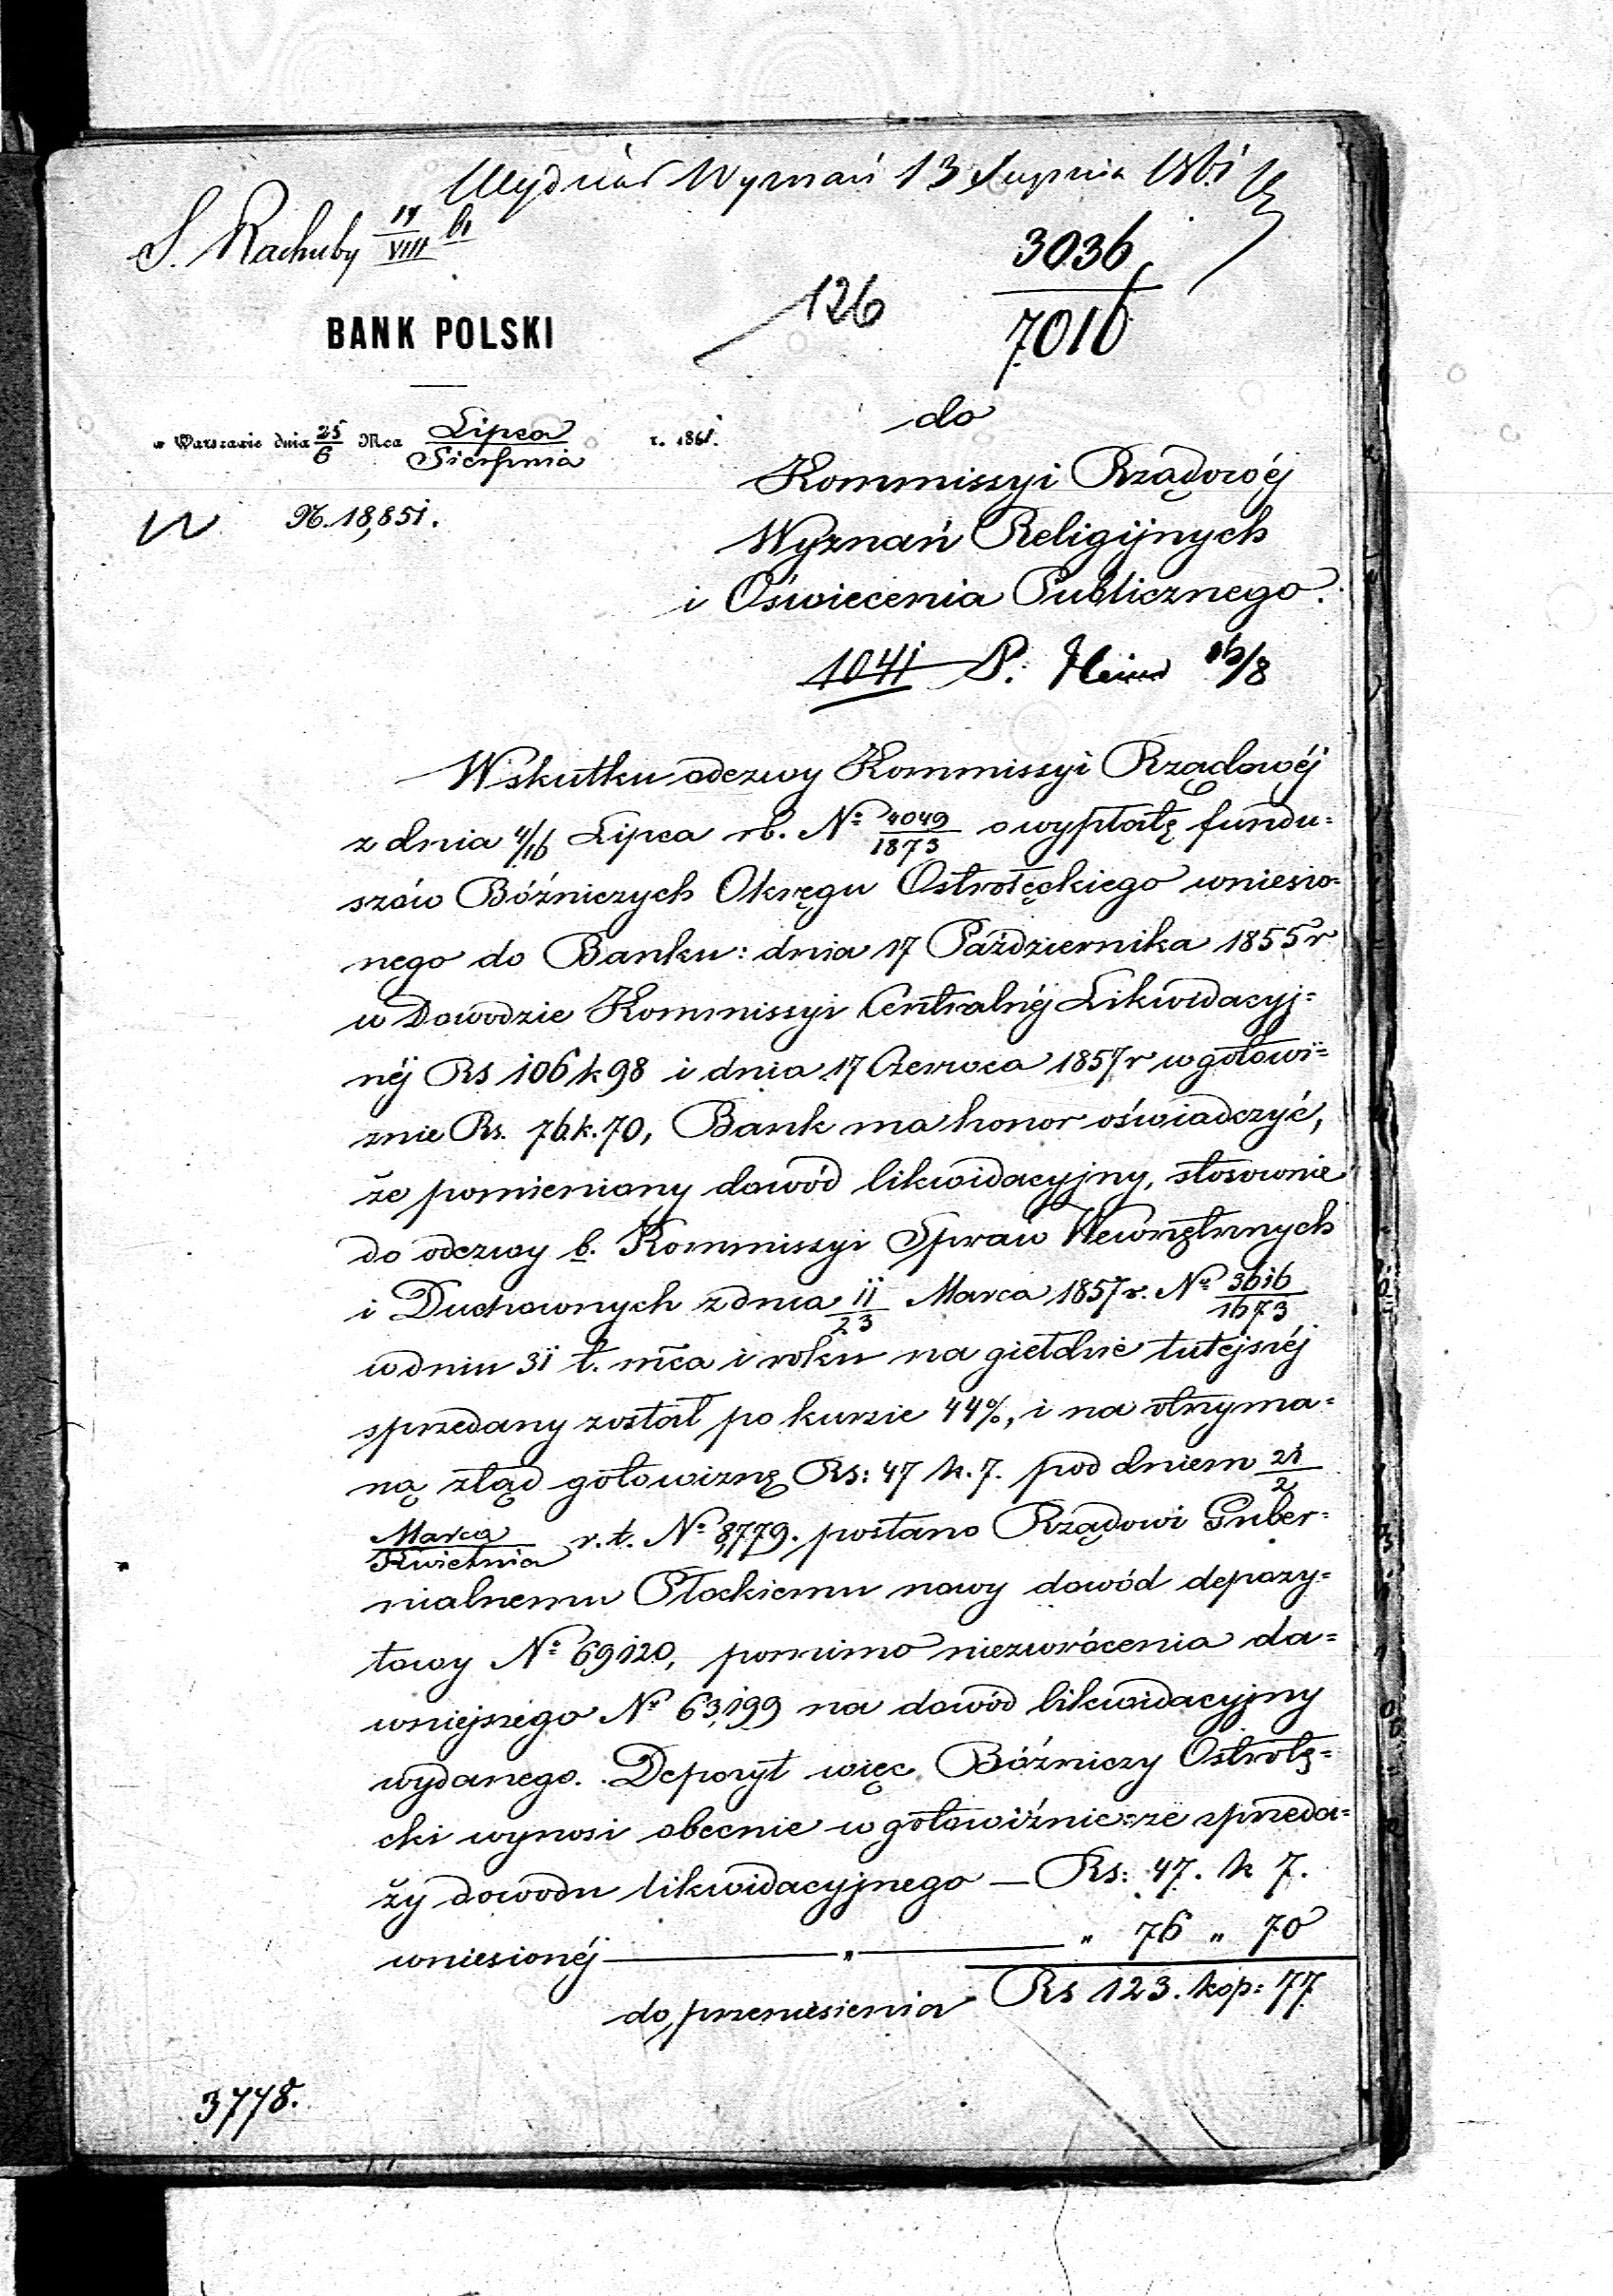 Wydział Wyznań 13 Sierpnia 1861
S. Rachuby 14/VIII 61
3036
126
7016
BANK POLSKI
do
w Warszawie dnia 25/6 Mca Lipca/Sierpnia r. 1861.
Kommissyi Rządowéj
N. 18,851.
Wyznań Religijnych
i Oświecenia Publicznego.
1041 P. 16/8
Wskutku odezwy Kommissyi Rządowéj
z dnia 4/16 Lipca rb. Nº 4049/1873 o wypłatę fundu=
szów Bóźniczych Okręgu Ostrołęckiego wniesio=
nego do Banku: dnia 17 Października 1855 r
w Dowodzie Kommissyi Centralnéj Likwidacyj=
néj Rs 106 k 98 i dnia 17 Czerwca 1857 r w gotowi=
znie Rs. 76 k. 70, Bank ma honor oświadczyć,
że pomieniony dowód likwidacyjny, stosownie
do odezwy b. Kommissyi Spraw Wewnętrznych
i Duchownych z dnia 11/23 Marca 1857 r. Nº 3616/1673
w dniu 31 t. mca i roku na giełdzie tutéjszéj
sprzedany został po kursie 44%, i na otrzyma=
ną ztąd gotowiznę Rs: 47 k. 7. pod dniem 21/2
Marca/Kwietnia r. t. Nº 8,779. posłano Rządowi Guber=
nialnemu Płockiemu nowy dowód depozy=
towy Nº 69120, pomimo niezwrócenia da=
wniejszego Nº 63,199 na dowód likwidacyjny
wydanego. Depozyt więc Bóźniczy Ostrołę=
cki wynosi obecnie w gotowiźnie: ze sprzeda=
ży dowodu likwidacyjnego — Rs: 47. k 7.
wniesionéj — " — " 76 " 70
do przeniesienia Rs 123. kop: 77
3778.